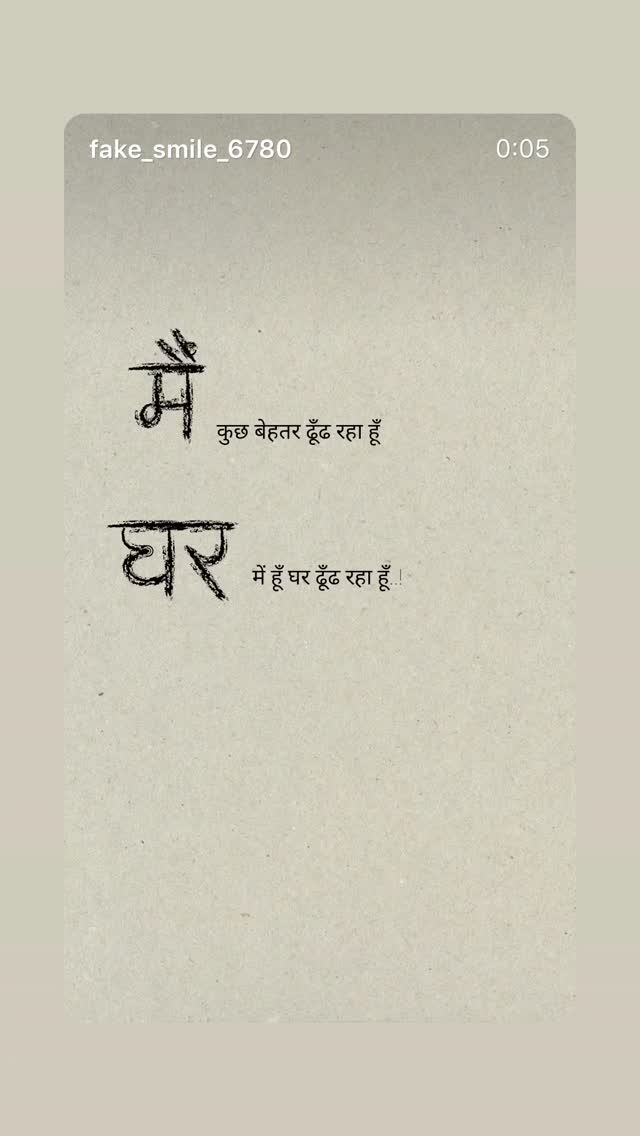 fake_smile_6780 0:05
मैं कुछ बेहतर ढूँढ रहा हूँ
घर में हूँ घर ढूँढ रहा हूँ..!